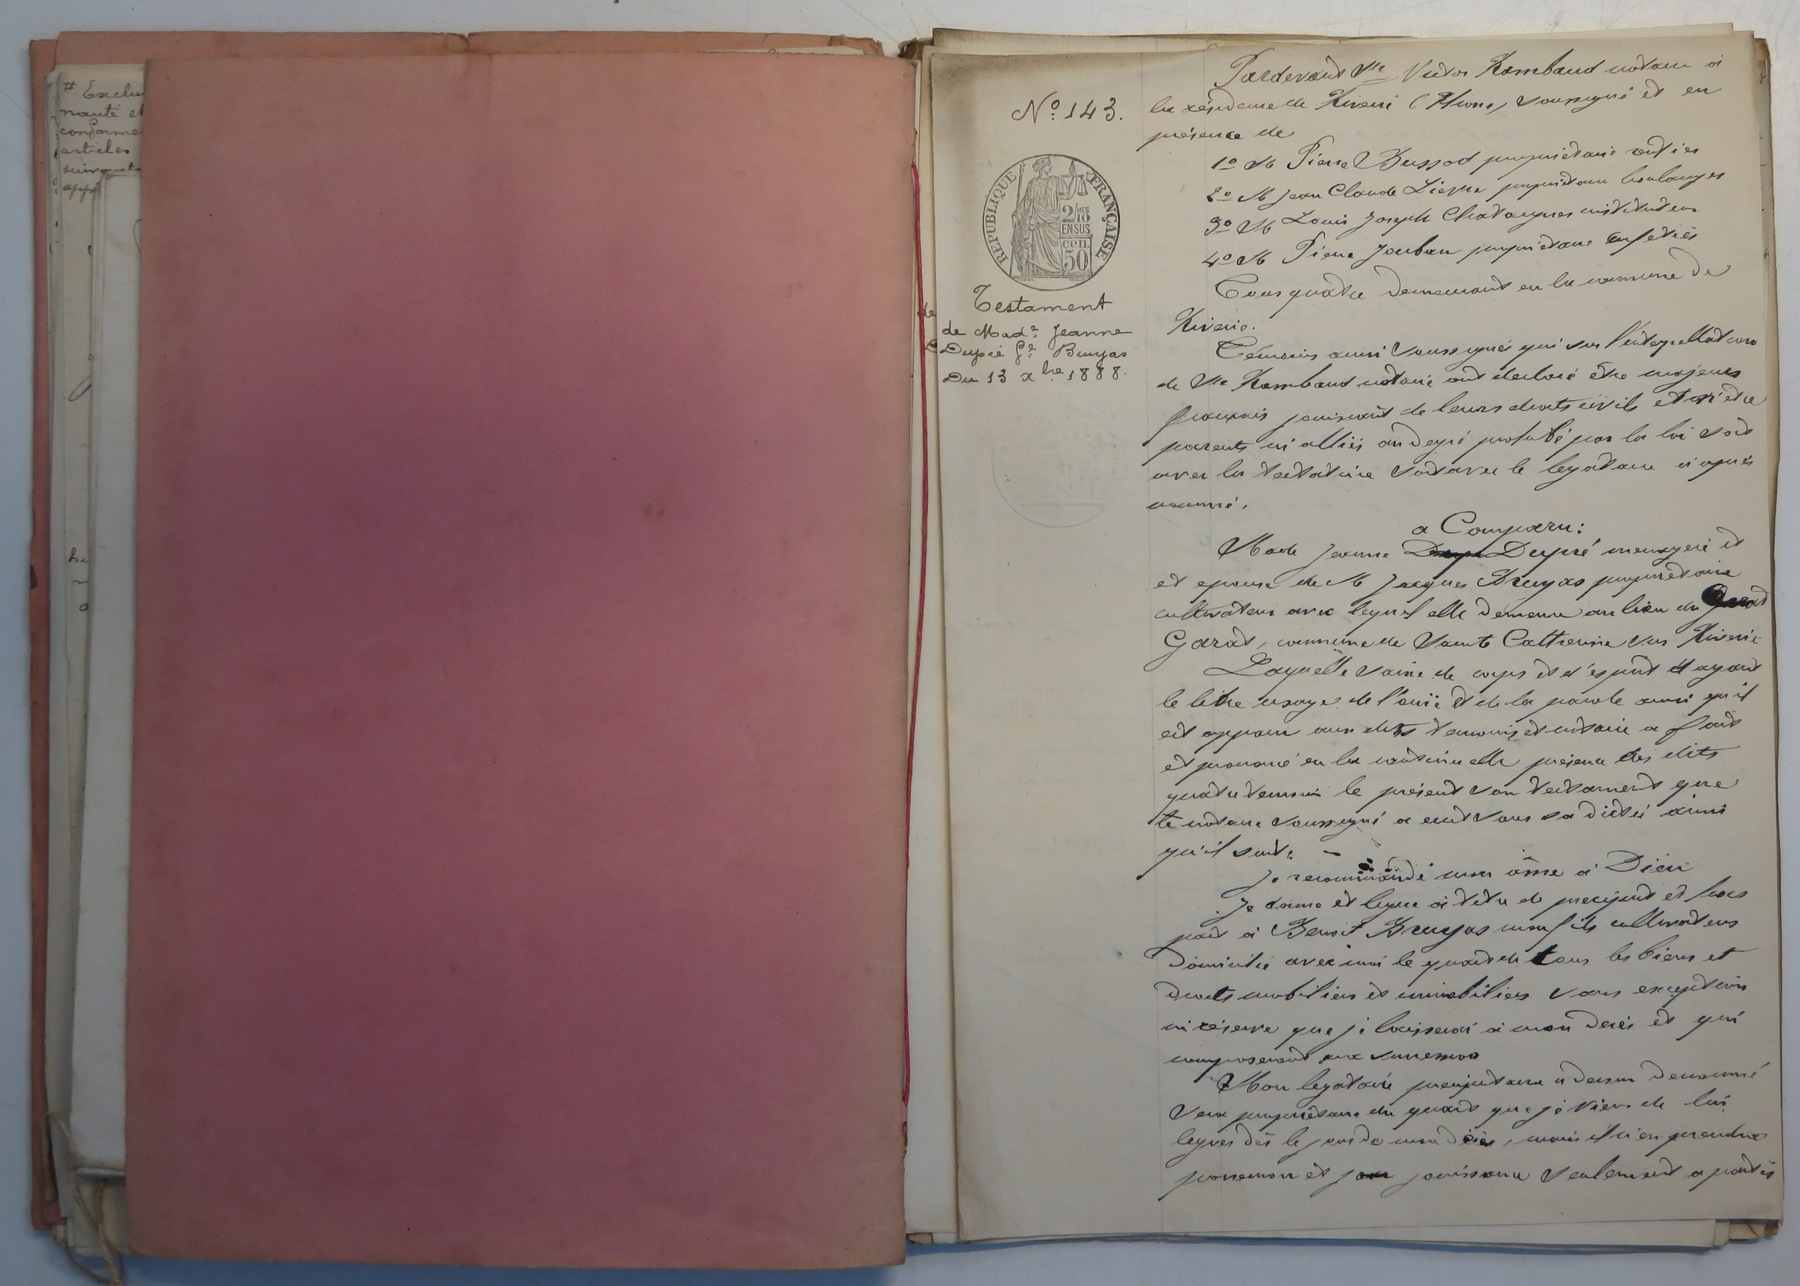 # Exclu
nauté et
conforme
articles
N° 143.
REPUBLIQUE FRANÇAISE
2/10
EN SUS
50 cen.
Testament
de Made Jeanne
Dupré fe Bruyas
Du 13 xbre 1888.
Pardevant Me Victor Rambaud notaire à
la résidence de Riverie (Rhône) soussigné et en
présence de
1o M Pierre Bussod propriétaire rentier
2o M Jean Claude propriétaire boulanger
3o M Louis Joseph Chatagner instituteur
4o M Pierre Jouban propriétaire
Tous quatre demeurant en la commune de
Riverie.
Témoins aussi soussignés qui sur l'interpellation
de Me Rambaud notaire ont déclaré être majeurs
français jouissant de leurs droits civils et n'être
parents ni alliés au degré prohibé par la loi soit
avec la testatrice soit avec le légataire ci après
nommé.
a Comparu:
Made Jeanne Dupré menagère et
et épouse de M Jacques Bruyas propriétaire
cultivateur avec lequel elle demeure au lieu du
Garat, commune de Sainte Catherine sur Riverie
Laquelle saine de corps et d'esprit et ayant
le libre usage de l'ouïe et de la parole ainsi qu'il
est apparu aux dits témoins et notaire a fait
et prononcé en la continuelle présence des dits
quatre témoins le présent son testament que
le notaire soussigné a écrit sous sa dictée ainsi
qu'il suit:
Je recommande mon âme à Dieu
Je donne et lègue à titre de préciput et hors
part à Benoit Bruyas mon fils cultivateur
domicilié avec moi le quart de tous les biens et
droits mobiliers et immobiliers sans exception
ni réserve que je laisserai à mon décès et qui
composeront ma succession
Mon légataire préciputaire ci dessus dénommé
sera propriétaire du quart que je viens de lui
léguer dès le jour de mon décès, mais il n'en prendra
possession et jouissance seulement à partir